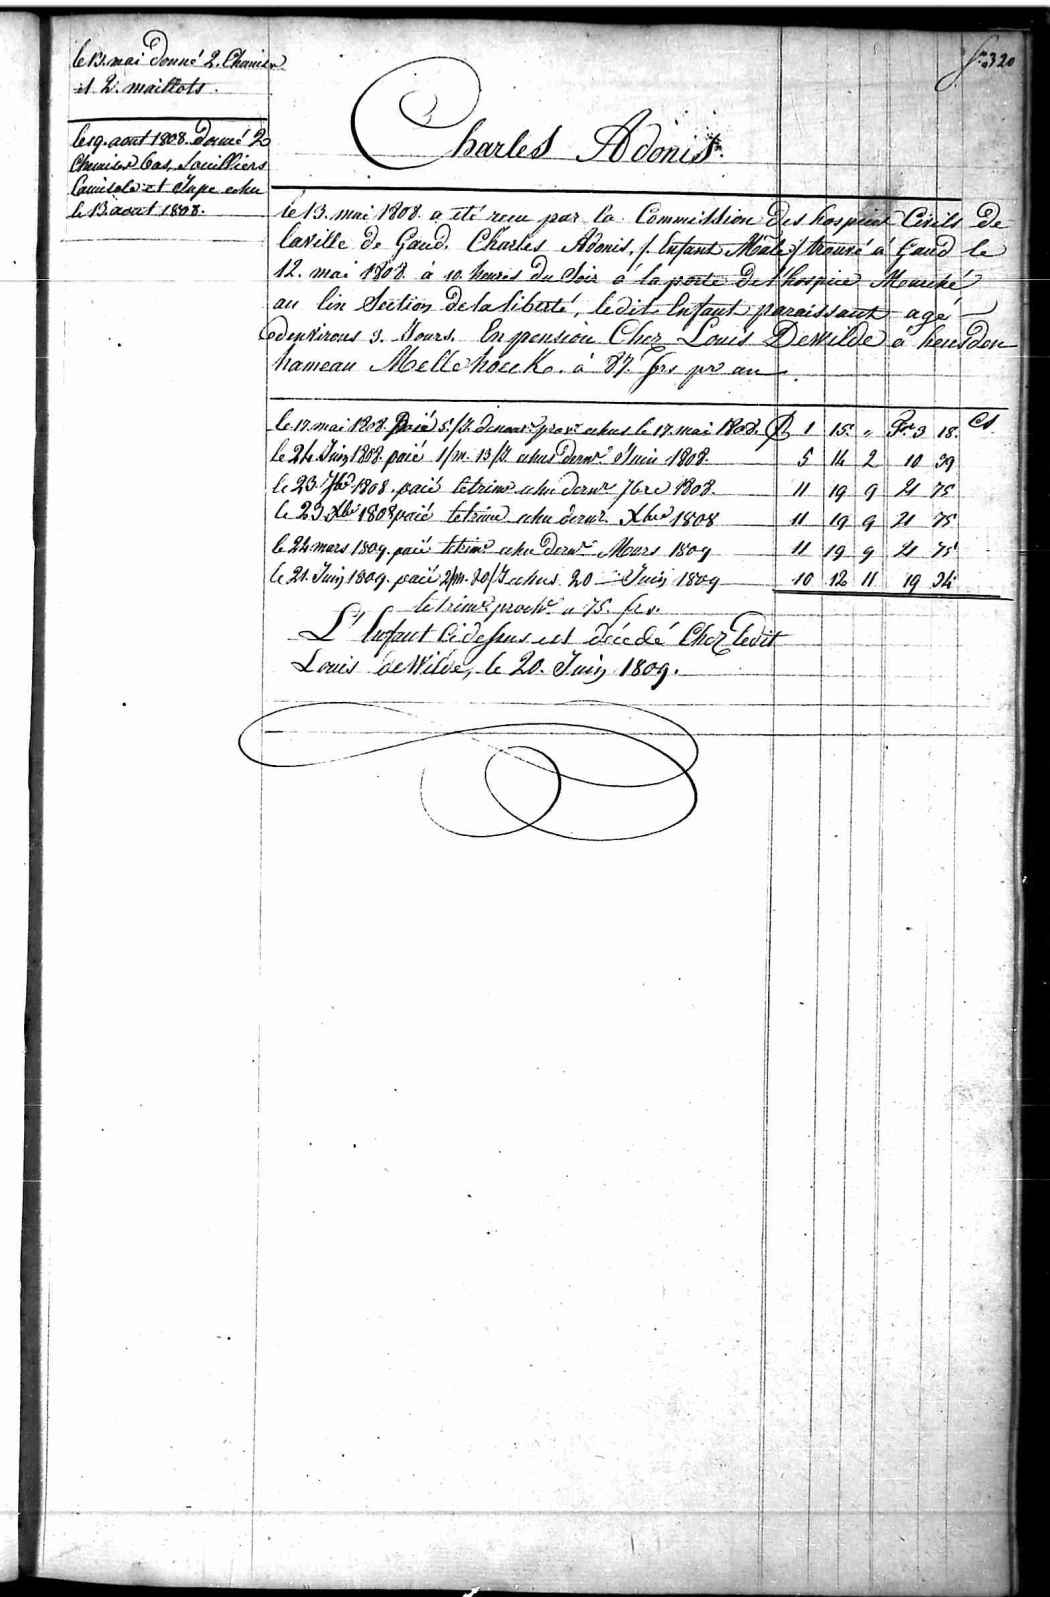 fo. 320
le 13. mai donné 2. Chemises
et 2. maillots.
le 19. aout 1808. donné 2
Chemises bas, Souilliers
Camisole et Jupe echu
le 13 aout 1808.
Charles Adonis.
le 13. mai 1808. a été recu par la Commission des hospices Civils de
la ville de Gand. Charles Adonis, /. Enfant Mâle ./ trouvé à Gand le
12. mai 1808. à 10. heures du Soir à la porte de l'hospice Marché
au lin Section de la liberté, ledit Enfant paraissant agé
d'environs 3. Jours. En pension Chez Louis DeWilde à heusden
hameau Mellehoeck. à 87. frs pr an
le 17. mai 1808. Paié 5/J. denour. provr. echus le 17. mai 1808. 1 15 " Frs 3 18. Cs
le 24 Juin 1808. paié 1/m. 13/J. echus dernr. Juin 1808. 5 14 2 10 39
le 23. 7br 1808. paié le trimr echu dernr 7bre 1808. 11 19 9 21 75
le 23 Xbr 1808 paié le trimr echu dernr. Xbre 1808 11 19 9 21 75
le 24 mars 1809. paié le trimr echu dernr Mars 1809 11 19 9 21 75
le 21. Juin 1809. paié 2/m. 20/J echus 20 Juin 1809 10 12 11 19 34
le trimr. prochr a 75. frs.
L'Enfant Cidessus est décédé Chez ledit
Louis deWilde, le 20. Juin 1809.